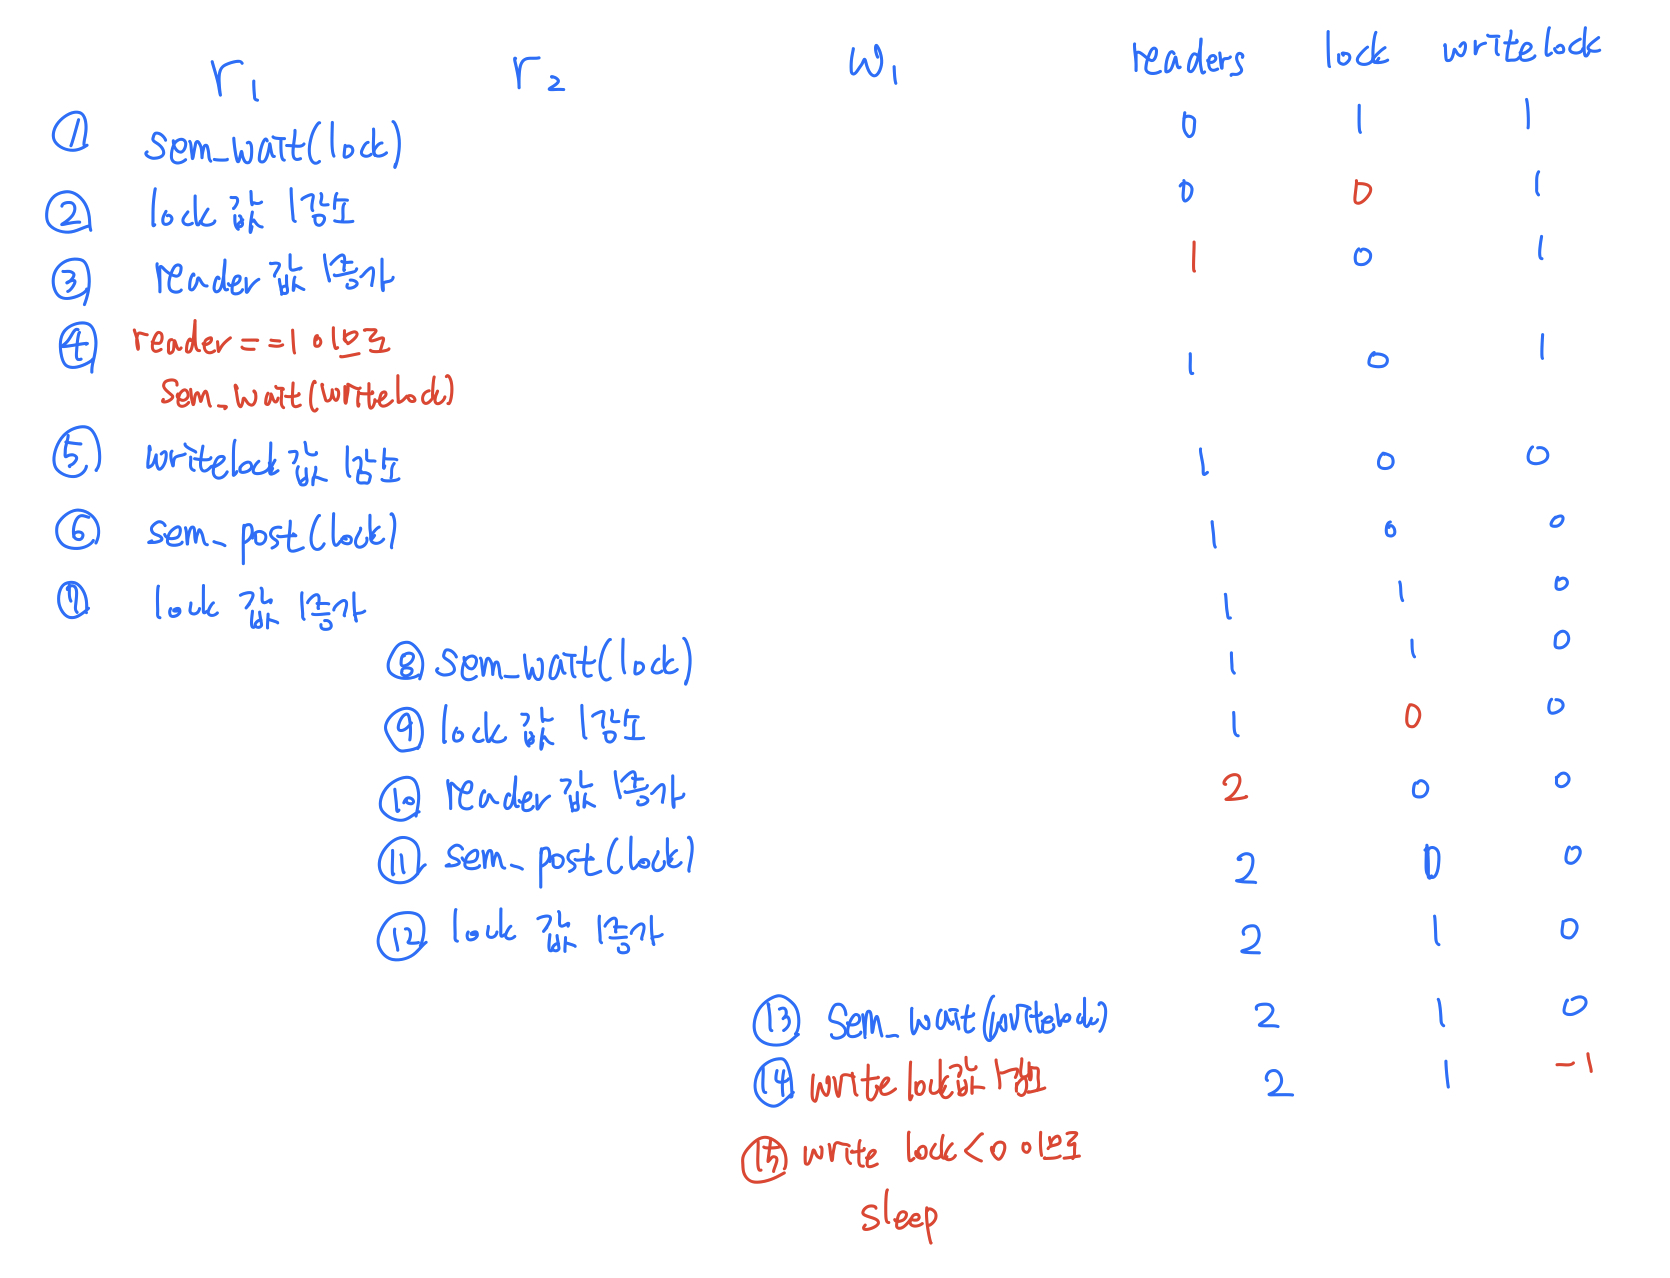 r1 r2 w1 readers lock writelock
① sem_wait(lock) 0 1 1
② lock 값 1감소 0 0 1
③ reader 값 1증가 1 0 1
④ reader==1 이므로 1 0 1
sem_wait(writelock)
⑤ writelock 값 1감소 1 0 0
⑥ sem_post(lock) 1 0 0
⑦ lock 값 1증가 1 1 0
⑧ sem_wait(lock) 1 1 0
⑨ lock 값 1감소 1 0 0
⑩ reader 값 1증가 2 0 0
⑪ sem_post(lock) 2 0 0
⑫ lock 값 1증가 2 1 0
⑬ sem_wait(writelock) 2 1 0
⑭ write lock값 2 1 -1
⑮ write lock<0 이므로
sleep